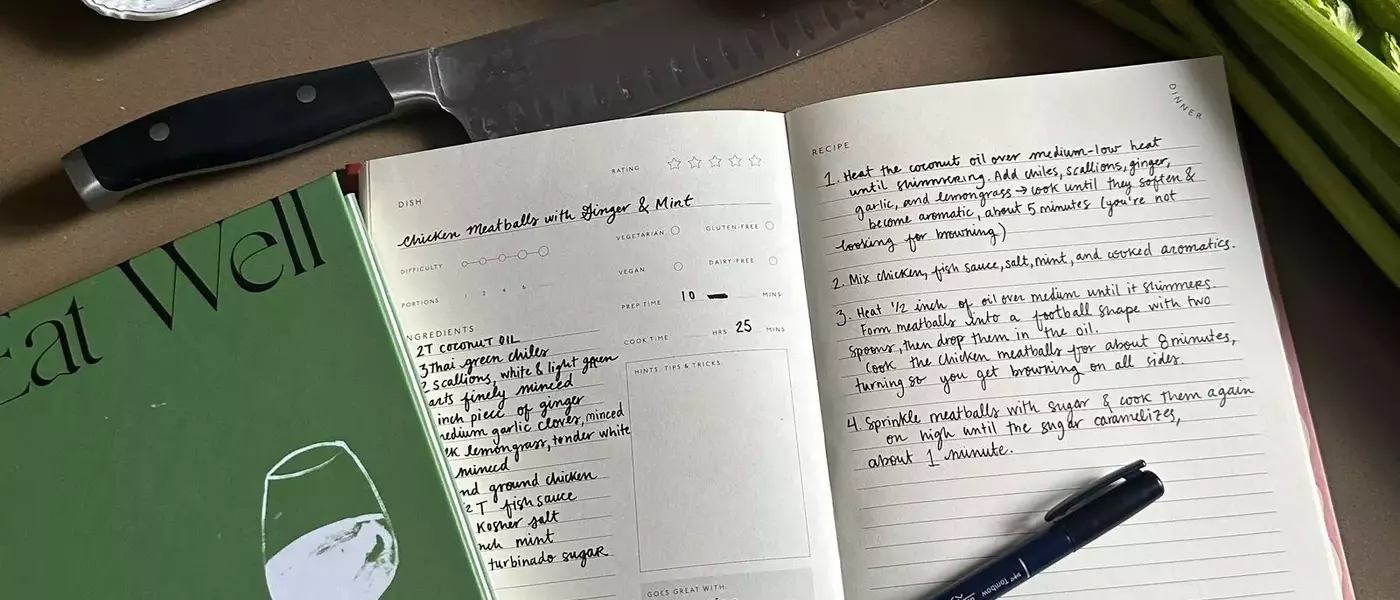 Eat Well
RATING
DISH
Chicken Meatballs with Ginger & Mint
DIFFICULTY
VEGETARIAN
GLUTEN-FREE
VEGAN
DAIRY-FREE
PORTIONS
1 2 4 6
PREP TIME 10 MINS
COOK TIME HRS 25 MINS
NGREDIENTS
2T COCONUT OIL
3 Thai green chiles
2 scallions, white & light green
arts finely minced
inch piece of ginger
edium garlic cloves, minced
lemongrass, tender white
minced
nd ground chicken
2T fish sauce
Kosher salt
nch mint
turbinado sugar
HINTS, TIPS & TRICKS
GOES GREAT WITH
DINNER
RECIPE
1. Heat the coconut oil over medium-low heat
until shimmering. Add chiles, scallions, ginger,
garlic, and lemongrass → cook until they soften &
become aromatic, about 5 minutes (you're not
looking for browning)
2. Mix chicken, fish sauce, salt, mint, and cooked aromatics.
3. Heat 1/2 inch of oil over medium until it shimmers.
Form meatballs into a football shape with two
spoons, then drop them in the oil.
Cook the chicken meatballs for about 8 minutes,
turning so you get browning on all sides.
4. Sprinkle meatballs with sugar & cook them again
on high until the sugar caramelizes,
about 1 minute.
Tombow